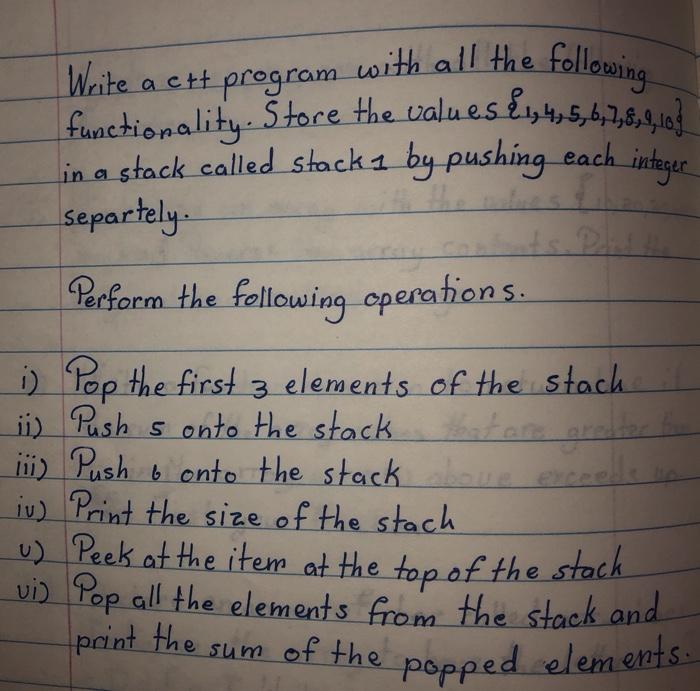 Write a c++ program with all the following
functionality. Store the values {1,4,5,6,7,8,9,10}
in a stack called stack 1 by pushing each integer
separtely.
Perform the following operations.
i) Pop the first 3 elements of the stack
ii) Push 5 onto the stack
iii) Push 6 onto the stack
iv) Print the size of the stack
v) Peek at the item at the top of the stack
vi) Pop all the elements from the stack and
print the sum of the popped elements.